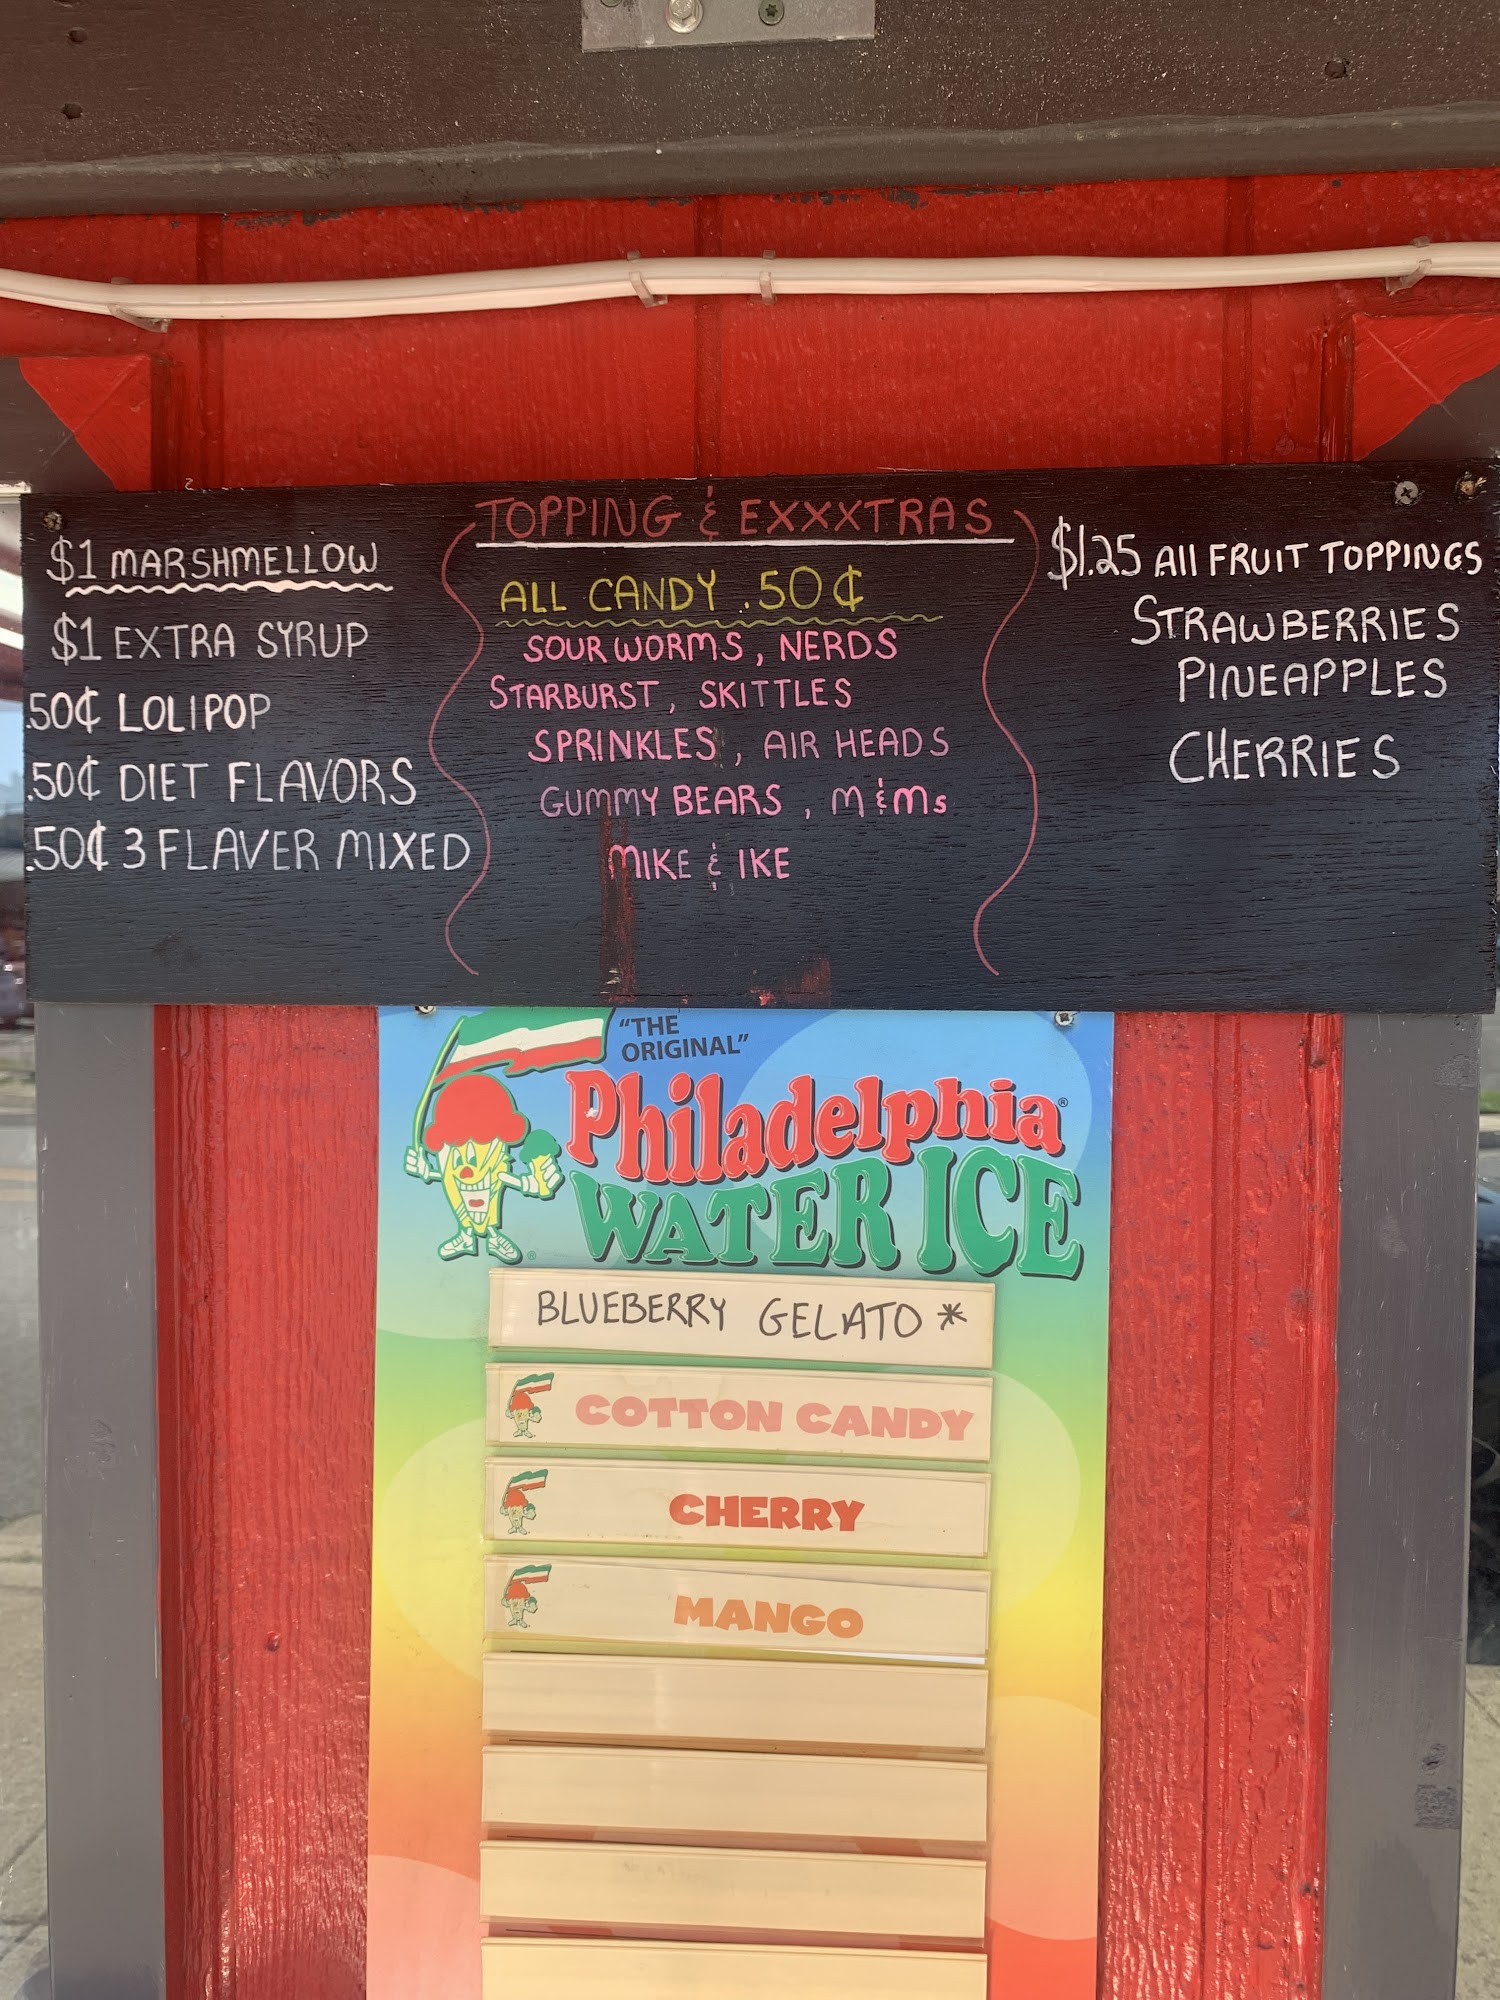 TOPPING & EXXXTRAS
$1 MARSHMELLOW
$1 EXTRA SYRUP
.50¢ LOLIPOP
.50¢ DIET FLAVORS
.50¢ 3 FLAVER MIXED
ALL CANDY .50¢
SOUR WORMS, NERDS
STARBURST, SKITTLES
SPRINKLES, AIR HEADS
GUMMY BEARS, M&Ms
MIKE & IKE
$1.25 All FRUIT TOPPINGS
STRAWBERRIES
PINEAPPLES
CHERRIES
"THE
ORIGINAL"
Philadelphia®
WATER ICE
®
BLUEBERRY GELATO *
COTTON CANDY
CHERRY
MANGO